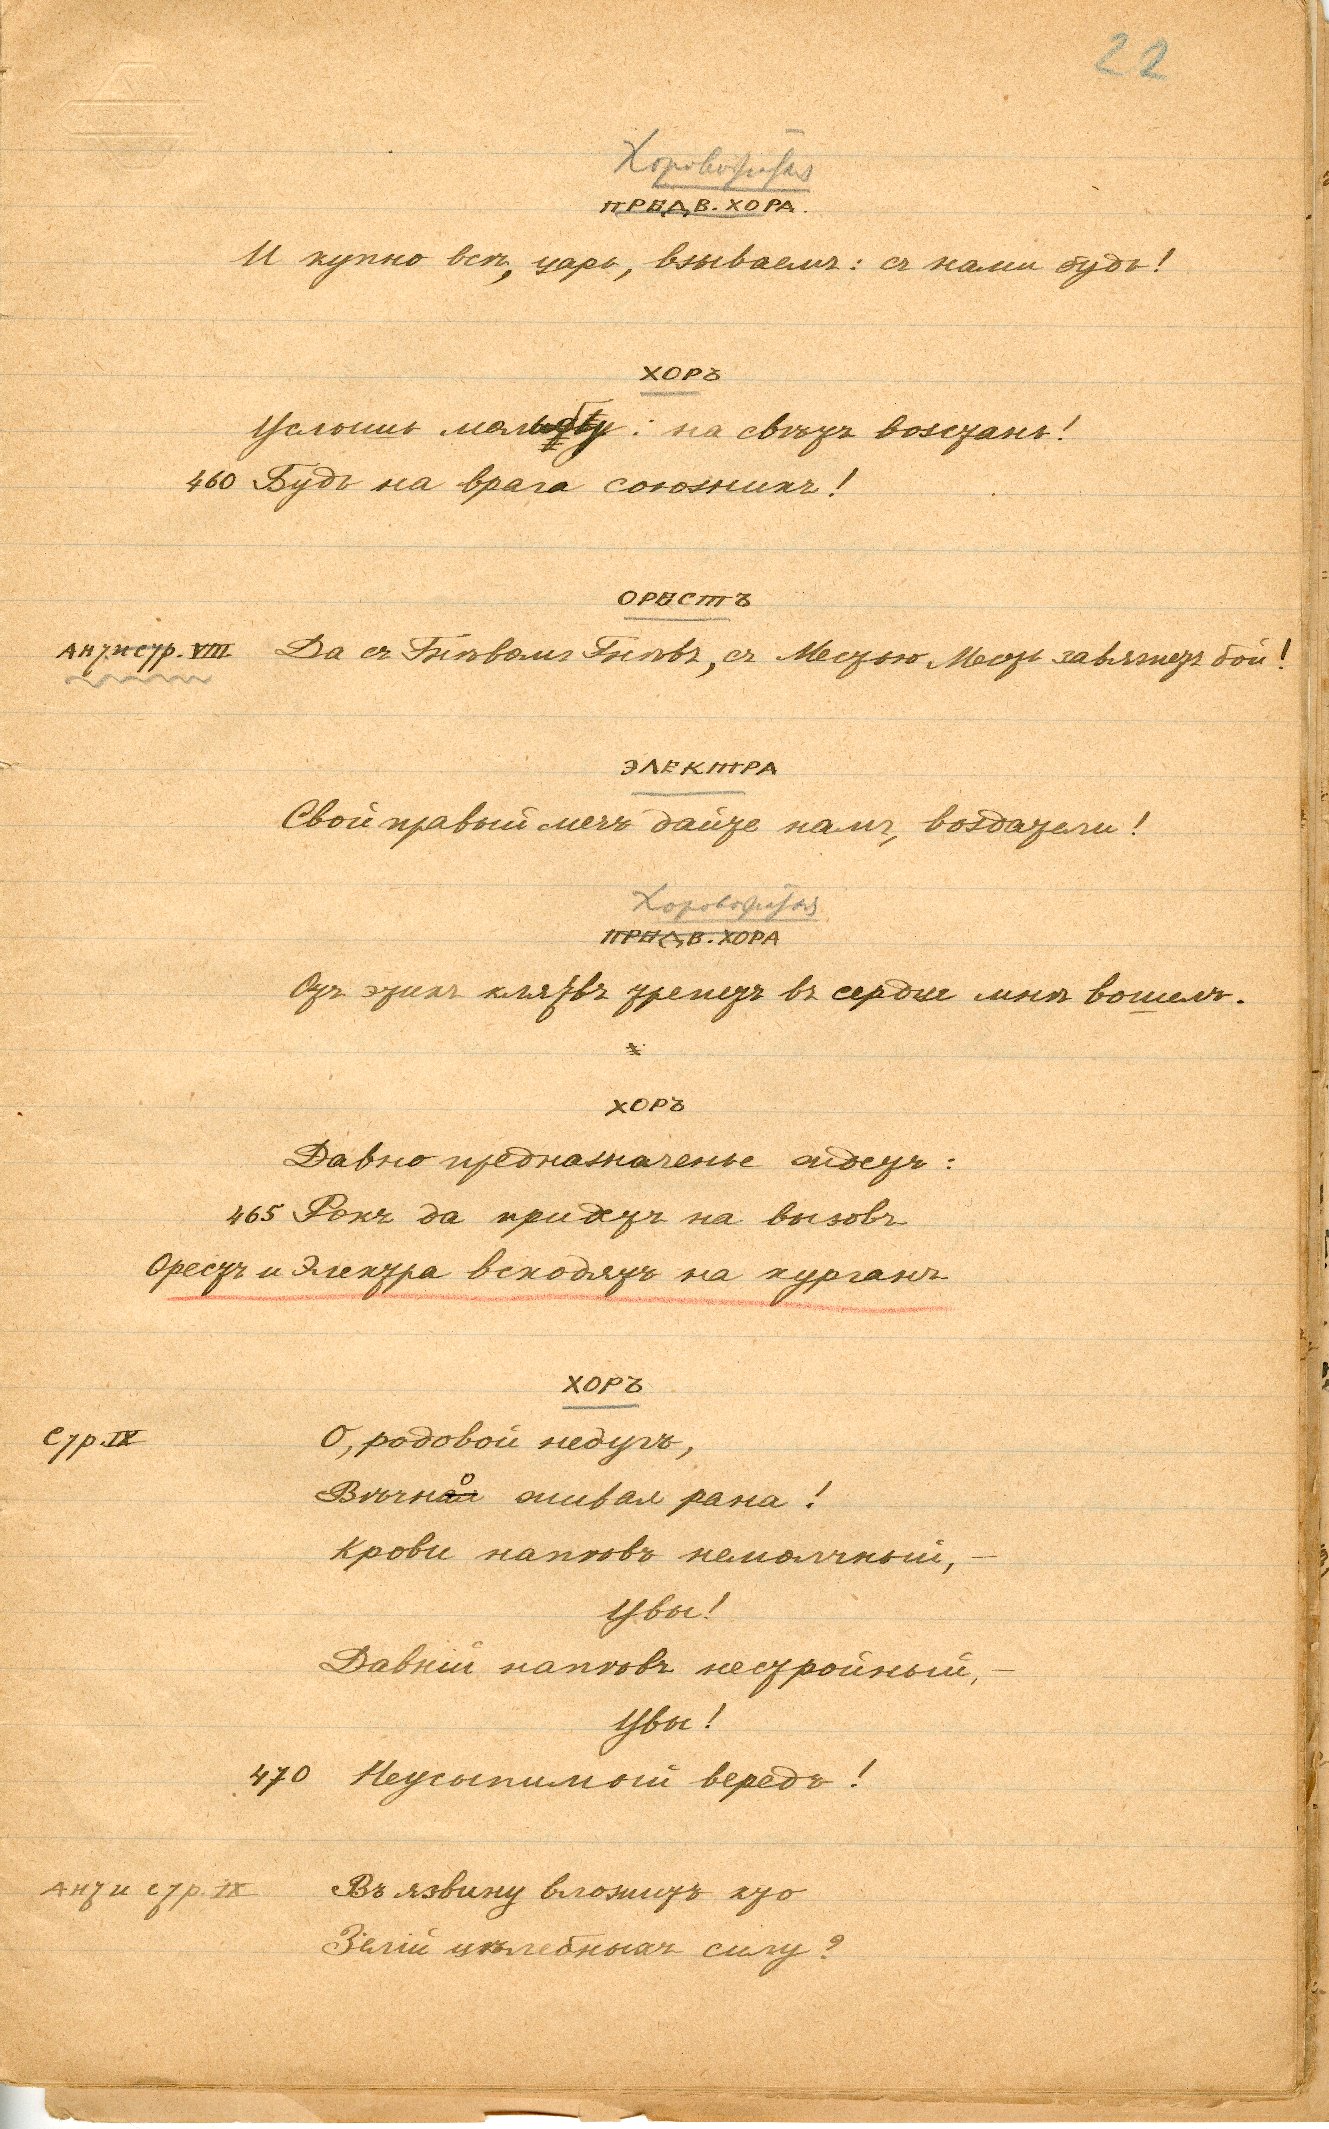 22
Хороводитая
ПРЕДВ. ХОРА.
И купно всѣ, царь, взываемъ: съ нами будь!
ХОРЪ
Услышь мольбу: на свѣтъ возстань!
460 Будь на врага союзникъ!
ОРЕСТЪ
Антистр. VIII Да съ Гнѣвомъ Гнѣвъ, съ Местью Месть завяжетъ бой!
ЭЛЕКТРА
Свой правый мечъ дайте намъ, воздатели!
ПРЕДВ. ХОРА
Отъ этихъ клятвъ трепетъ въ сердце мнѣ вошелъ.
ХОРЪ
Давно предназначенье ждетъ:
465 Рокъ да придетъ на вызовъ
Орестъ и Электра всходятъ на курганъ
ХОРЪ
Стр. IX О, родовой недугъ,
Вѣчно живая рана!
Крови напѣвъ немолчный, —
Увы!
Давній напѣвъ нестройный, —
Увы!
470 Неусыпимый вередъ!
Антистр. IX Въ язвину вложитъ кто
Зелій цѣлебныхъ силу?